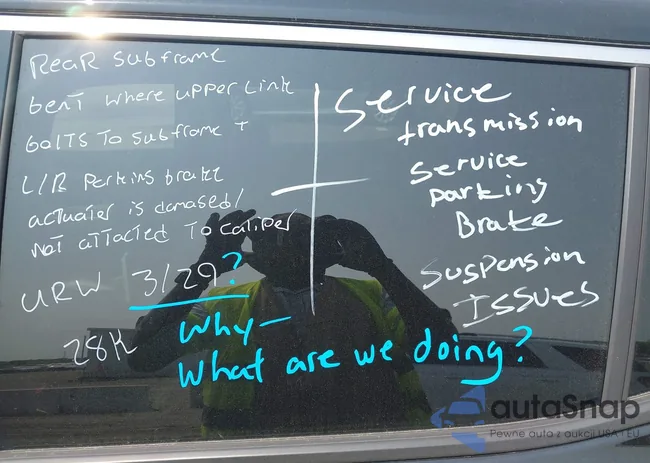 Rear subframe
bent where upper link
bolts to subframe +
L/R Perking brake
actuater is damased/
not attacted to caliper
URW 3/29?
28K
Service
transmission
Service
parking
Brake
Suspension
Issues
Why—
What are we doing?
autaSnap
Pewne auta z aukcji USA i EU